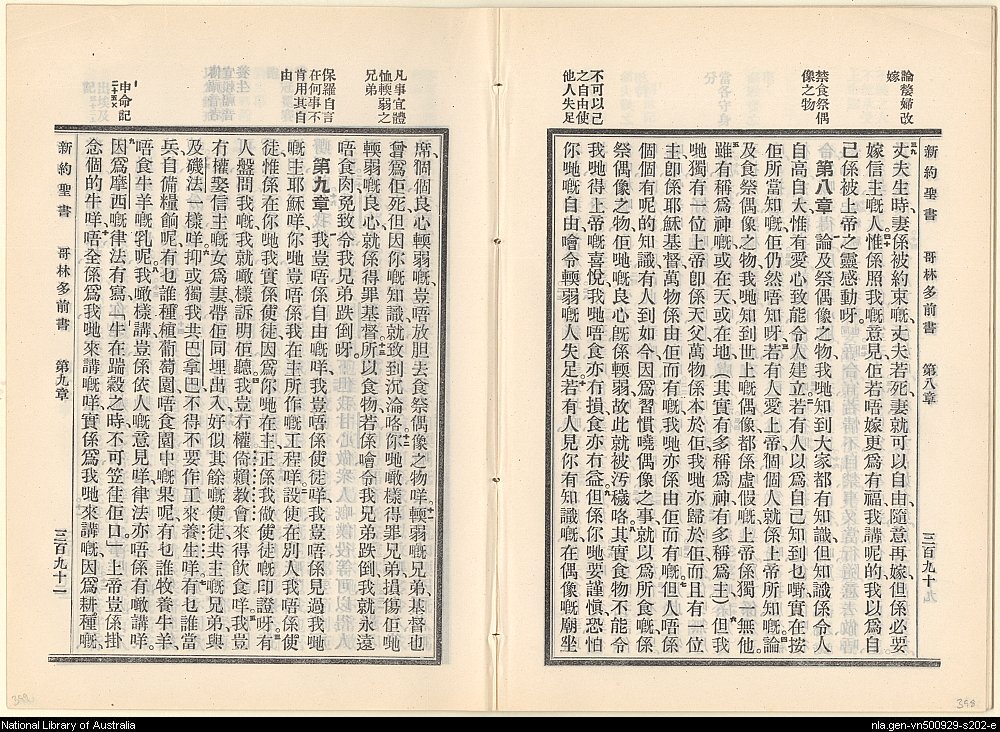 論嫠婦改
嫁
禁食祭偶
像之物
不可以己
之自由使
他人失足
新約聖書 哥林多前書 第八章 三百九十一
三九丈夫生時、妻係被約束嘅、丈夫若死、妻就可以自由、隨意再嫁、但係必要
嫁信主嘅人。四十惟係照我嘅意見、佢若唔嫁、更爲有福、我講呢的、我以爲自
己係被上帝之靈感動呀。
第八章 一論及祭偶像之物、我哋知到大家都有知識、但知識係令人
自高自大、惟有愛心致能令人建立。二若有人以爲自己知到乜嘢、實在按
佢所當知嘅、佢仍然唔知呀。三若有人愛上帝、個個人就係上帝所知嘅。四論
及食祭偶像之物、我哋知到世上嘅偶像都係虛假嘅、上帝係獨一無他。
五雖有稱爲神嘅、或在天、或在地、（其實有多稱爲神、有多稱爲主、）六但我
哋獨有一位上帝、卽係天父、萬物係本於佢、我哋亦歸於佢、而且有一位
主、卽係耶穌基督、萬物係由佢而有嘅、我哋亦係由佢而有嘅。七但人唔係
個個有呢的知識、有人到如今因爲習慣嘵偶像之事、就以爲所食嘅係
祭偶像之物、佢哋嘅良心旣係輭弱、故此就被污穢咯。八其實食物不能令
我哋得上帝嘅喜悅、我哋唔食亦冇損、食亦冇益。九但係你哋要謹慎、恐怕
你哋嘅自由、噲令輭弱嘅人失足。十若有人見你有知識嘅、在偶像嘅廟坐
凡事宜體
恤輭弱之
兄弟
保羅自言
在何事不
肯用其自
由
申命記
二十五〇四
席、個個良心輭弱嘅、豈唔放胆去食祭偶像之物咩。十一輭弱嘅兄弟、基督也
曾爲佢死、但因你嘅知識、就致到沉淪咯。十二你哋噉樣得罪兄弟、損傷佢哋
輭弱嘅良心、就係得罪基督。十三所以食物若係噲令我兄弟跌倒、我就永遠
唔食肉、免致令我兄弟跌倒呀。
第九章 一我豈唔係自由嘅咩、我豈唔係使徒咩、我豈唔係見過我哋
嘅主耶穌咩、你哋豈唔係我在主所作嘅工程咩。二設使在別人我唔係使
徒、惟係在你哋我實係使徒、因爲你哋在主、正係我做使徒嘅印證呀。三有
人盤問我嘅、我就噉樣訴明佢聽。四我豈冇權倚賴教會來得飲食咩。五我豈
冇權娶信主嘅女爲妻、帶佢同埋出入、好似其餘嘅使徒、共主嘅兄弟、與
及磯法一樣咩。六抑或獨我共巴拿巴、不得不要作工來養生咩。七有乜誰當
兵自備糧餉呢、有乜誰種植葡萄園、唔食園中嘅果呢、有乜誰牧養牛羊、
唔食牛羊嘅乳呢。八我噉樣講、豈係依人嘅意見咩、律法亦唔係有噉講咩。
九因爲摩西嘅律法有寫、「牛在踹穀之時、不可笠住佢口、」上帝豈係掛
念個的牛咩。十唔全係爲我哋來講嘅咩、實係爲我哋來講嘅、因爲耕種嘅、
新約聖書 哥林多前書 第九章 三百九十二
National Library of Australia
nla.gen-vn500929-s202-e